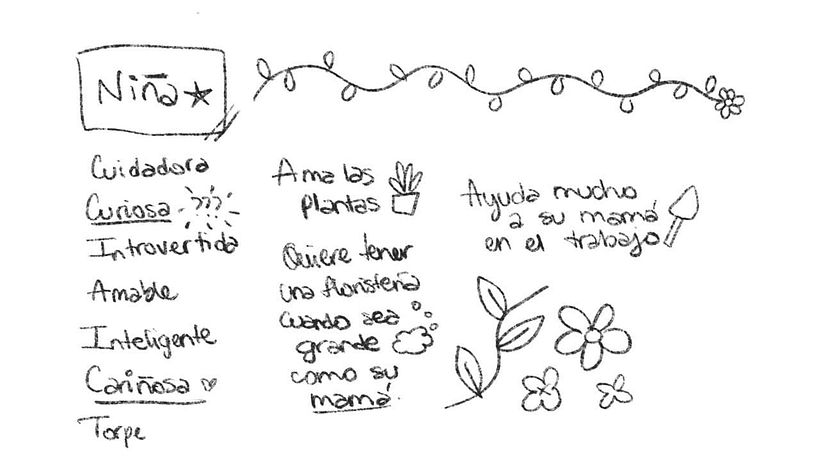 Niña
Cuidadora
Curiosa ???
Introvertida
Amable
Inteligente
Cariñosa
Torpe
Ama las
plantas
Quiere tener
una floristería
cuando sea
grande
como su
mamá.
Ayuda mucho
a su mamá
en el trabajo